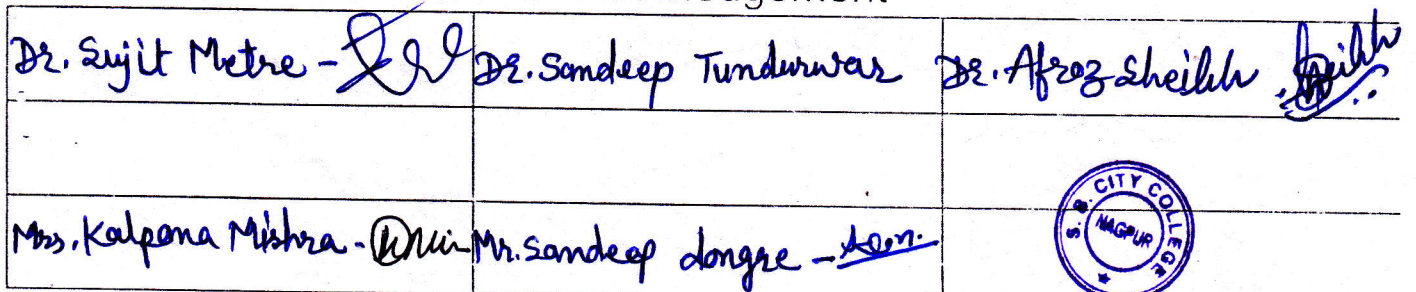 Dr. Sujit Metre - Dr. Sandeep Tundurwar Dr. Afroz Sheikh
Mrs. Kalpana Mishra - Mr. Sandeep dongre -
S. B. CITY COLLEGE
NAGPUR